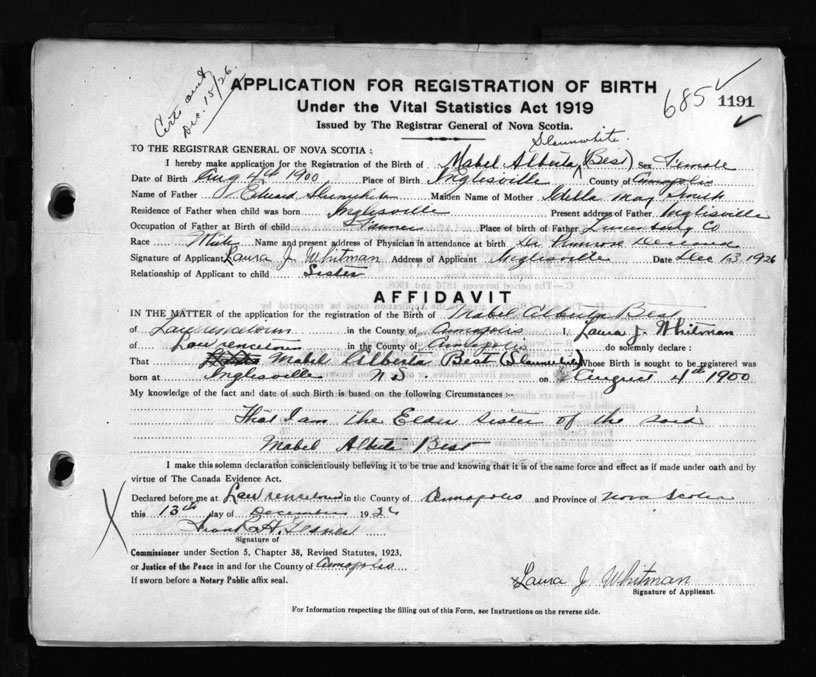 Certs and
Dec. 15/26.
APPLICATION FOR REGISTRATION OF BIRTH
685 1191
Under the Vital Statistics Act 1919
Issued by The Registrar General of Nova Scotia.
Slaunwhite
TO THE REGISTRAR GENERAL OF NOVA SCOTIA :
I hereby make application for the Registration of the Birth of Mabel Alberta (Best) Sex Female
Date of Birth Aug 4th 1900 Place of Birth Inglisville County of Annapolis
Name of Father Edward Maiden Name of Mother May
Residence of Father when child was born Inglisville Present address of Father Inglisville
Occupation of Father at Birth of child Farmer Place of birth of Father Lunenburg Co
Race White Name and present address of Physician in attendance at birth Dr Primrose Deceased
Signature of Applicant Laura J Whitman Address of Applicant Inglisville Date Dec 13 1926
Relationship of Applicant to child Sister
AFFIDAVIT
IN THE MATTER of the application for the registration of the Birth of Mabel Alberta Best
of Lawrencetown in the County of Annapolis I, Laura J. Whitman
of Lawrencetown in the County of Annapolis do solemnly declare :
That Mabel Alberta Best (Slaunwhite) Whose Birth is sought to be registered was
born at Inglisville N S. on August 4th 1900
My knowledge of the fact and date of such Birth is based on the following Circumstances :-
That I am the Elder sister of the said
Mabel Alberta Best
I make this solemn declaration conscientiously believing it to be true and knowing that it is of the same force and effect as if made under oath and by
virtue of The Canada Evidence Act.
Declared before me at Lawrencetown in the County of Annapolis and Province of Nova Scotia
this 13th day of December 1926
Signature of
Commissioner under Section 5, Chapter 38, Revised Statutes, 1923.
or Justice of the Peace in and for the County of Annapolis
If sworn before a Notary Public affix seal.
Laura J Whitman
Signature of Applicant.
For Information respecting the filling out of this Form, see Instructions on the reverse side.